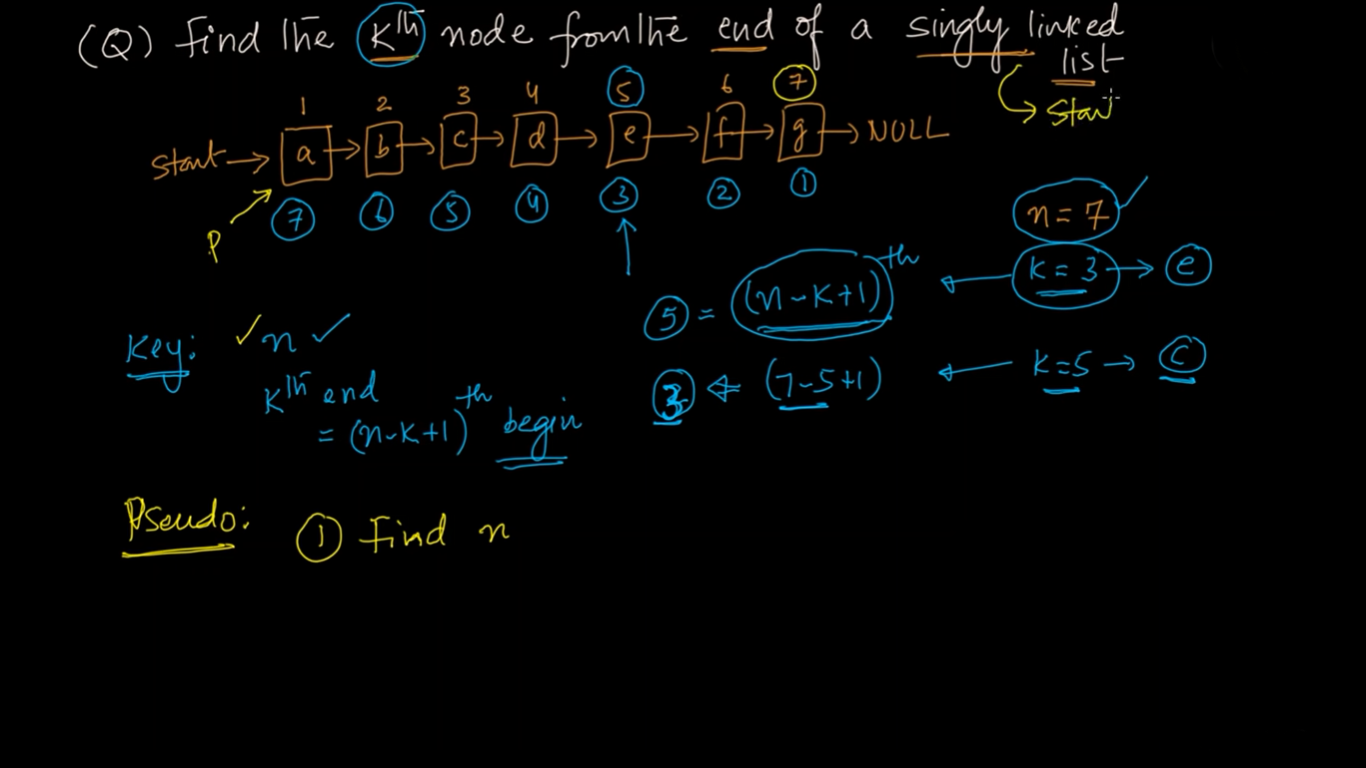 (Q) Find the Kth node from the end of a singly linked
list
→ Star
1 2 3 4 5 6 7
Start → a → b → c → d → e → f → g → NULL
P
7 6 5 4 3 2 1
n = 7 ✓
5 = (n-K+1)th ← k = 3 → e
Key: ✓ n ✓
3 ⇐ (7-5+1) ← k=5 → c
Kth end
= (n-K+1)th begin
Pseudo: 1 Find n